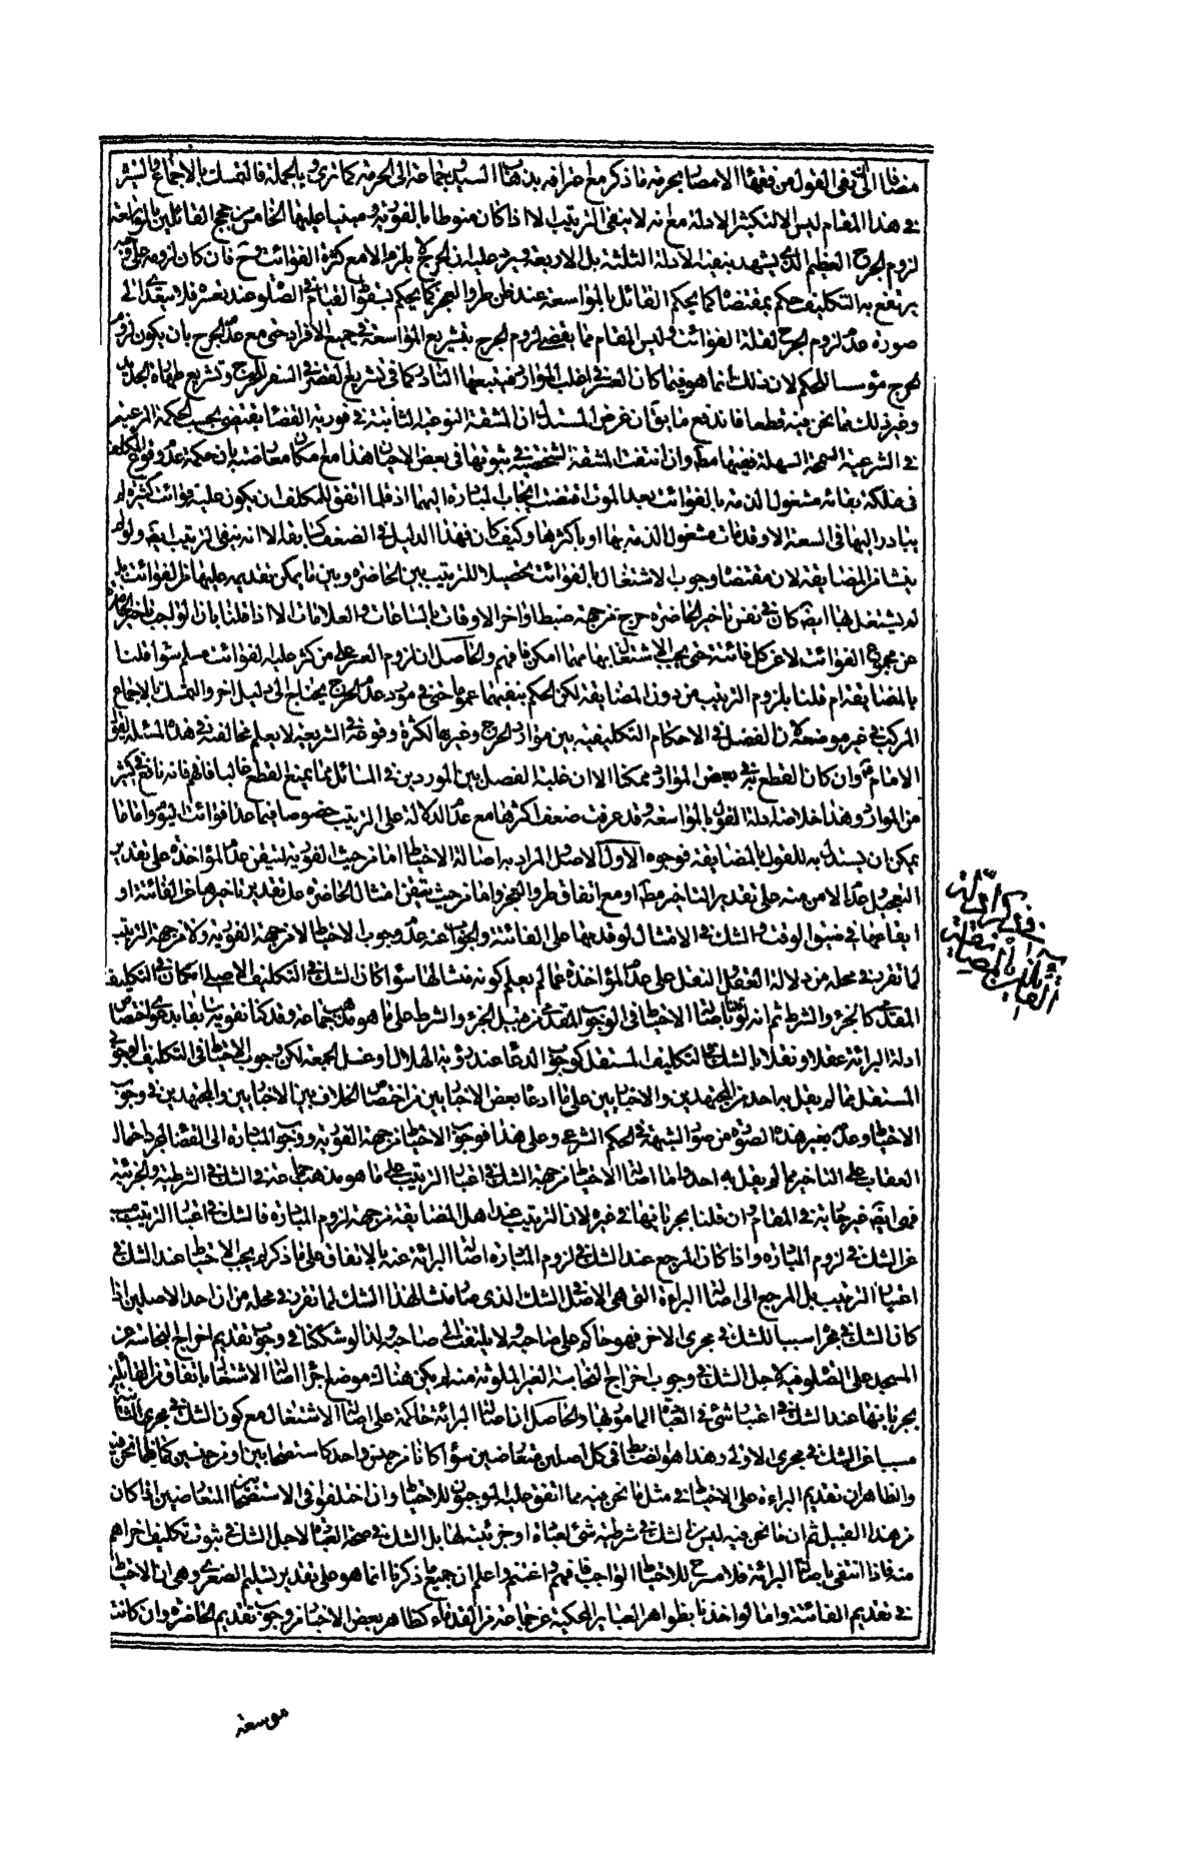 مضافا الى نفى القول من فقهاء الامصار بحرمة ما ذكر مع اعترافه بذهاب السيد و جماعة الى الحرمة كما ترى و بالجملة فالتمسك بالاجماع و السيرة
فى هذا المقام ليس الا لتكثير الادلة مع انه لا ينفى الترتيب الا اذا كان منوطا بالفورية و مبنيا عليها الخامس من حجج القائلين بالمواسعة
لزوم الحرج العظيم الذى يشهد بنفيه الادلة الثلثة بل الاربعة و يرد عليه ان الحرج لا يلزم الا مع كثرة الفوائت و ح فان كان لزومه على وجه
يرتفع به التكليف حكم بمقتضاه كما يحكم القائل بالمواسعة عند ظن طرو العجز كما يحكم بسقوط القيام فى الصلوة عند تعسره فلا يتعدى الى
صورة عدم لزوم الحرج لقلة الفوائت و ليس المقام مما يقضى لزوم الحرج بتشريع المواسعة فى جميع الافراد حتى مع عدم الحرج بان يكون لزوم
الحرج مؤسسا للحكم لان ذلك انما هو فيما كان العسر فى اغلب الموارد فيتبعها النادر كما فى تشريع القصر فى السفر للحرج و تشريع طهارة الحديد
و غير ذلك مما نحن فيه قطعا فاندفع ما يق ان غرض المستدل ان المشقة النوعية الثابتة فى فورية القضاء يقتضى بحسب الحكمة المرعية
فى الشريعة السمحة السهلة نفيها مط و ان انتفت المشقة الشخصية فى ثبوتها فى بعض الاحيان هذا مع امكان معارضته بان حكمة عدم وقوع المكلف
فى مهلكة بقائه مشغول الذمة بالفوائت بعد الموت اقتضت ايجاب المبادرة اليها اذ قلما اتفق للمكلف ان يكون عليه فوائت كثيرة لم
يبادر اليها فى السعة الا و قد مات مشغول الذمة بها او باكثرها و كيف كان فهذا الدليل فى الضعف كسابقه الا انه ينفى الترتيب ايضا و لو لم
ينشأ من المضايقة لان مقتضاه وجوب الاشتغال بالفوائت تحصيلا للترتيب بين الحاضرة و بين ما يمكن تقديمه عليها من الفوائت بل
لو لم يشتغل بها ايضا كان فى نفس تاخير الحاضرة حرج من جهة ضبط اواخر الاوقات بالساعات و العلامات الا اذا قلنا بان الواجب تاخير الحاضرة
عن مجموع الفوائت لا عن كل فائتة حتى يجب الاشتغال بها مهما امكن فافهم و الحاصل ان لزوم العسر على من كثر عليه الفوائت مسلم سواء قلنا
بالمضايقة ام قلنا بلزوم الترتيب من دون المضايقة لكن الحكم بنفيهما عموما حتى فى مورد عدم الحرج يحتاج الى دليل اخر و التمسك بالاجماع
المركب فى غير موضعه لان الفصل فى الاحكام التكليفية بين موارد الحرج و غيرها لكثرة وقوعه فى الشريعة لا يعلم مخالفته فى هذه المسئلة لقول
الامام ع و ان كان القطع به فى بعض الموارد ممكنا الا ان غلبة الفصل بين الموردين فى المسائل مما يمنع القطع غالبا فافهم فانه نافع فى كثير
من الموارد و هذا خلاصة ادلة القول بالمواسعة و قد عرفت ضعف اكثرها مع عدم الدلالة على الترتيب خصوصا فيما عدا فوائت اليوم و اما ما
يمكن ان يستدل به للقول بالمضايقة فوجوه الاول الاصل المراد به اصالة الاحتياط اما من حيث الفورية لتيقن عدم المؤاخذة على تقدير
التعجيل و عدم الامن منه على تقدير التاخير مط او مع اتفاق طرو العجز و اما من حيث تيقن امتثال الحاضرة على تقدير تاخيرها عن الفائتة او
ايقاعها فى ضيق الوقت و الشك فى الامتثال لو قدمها على الفائتة و الجواب عنه عدم وجوب الاحتياط لا من جهة الفورية و لا من جهة الترتيب
لما تقرر فى محله من دلالة العقل و النقل على عدم المؤاخذة عما لم يعلم كونه منشأ لها سواء كان الشك فى التكليف الاصلى ام كان فى التكليف
المقدمى كالجزء و الشرط ثم انه لو قلنا باصالة الاحتياط فى الوجوب المقدمى من قبيل الجزء و الشرط على ما هو مذهب جماعة و قد كنا نقويه سابقا بدعوى اختصاص
ادلة البرائة عقلا و نقلا بالشك فى التكليف المستقل كوجوب الدعاء عند رؤية الهلال او غسل الجمعة لكن وجوب الاحتياط فى التكليف الوجوبى
المستقل مما لم يقل به احد من المجتهدين و الاخباريين على ما ادعاه بعض الاخباريين من اختصاص الخلاف بين الاخباريين و المجتهدين فى وجوب
الاحتياط و عدمه بغير هذه الصورة من صور الشبهة فى الحكم الشرعى و على هذا فوجوب الاحتياط من جهة الفورية و وجوب المبادرة الى القضاء لمجرد احتمال
العقاب على التاخير مما لم يقل به احد و اما اصالة الاحتياط من جهة الشك فى اعتبار الترتيب على ما هو مذهب جماعة فى الشك فى الشرطية و الجزئية
فهى ايضا غير جارية فى المقام و ان قلنا بجريانها فى غيره لان الترتيب عند اهل المضايقة من جهة لزوم المبادرة فالشك فى اعتبار الترتيب مسبب
عن الشك فى لزوم المبادرة و اذا كان المرجع عند الشك فى لزوم المبادرة اصالة البرائة عنه بالاتفاق على ما ذكر لم يجب الاحتياط عند الشك فى
اعتبار الترتيب بل المرجع الى اصالة البراءة التى هى الاصل فى الشك الذى صار منشأ لهذا الشك لما تقرر فى محله من ان احد الاصلين اذا
كان الشك فى مجراه سببا للشك فى مجرى الاخر فهو حاكم على صاحبه و لا يلتفت الى صاحبه و لذا لو شككنا فى وجوب تقديم اخراج النجاسة عن
المسجد على الصلوة فيه لاجل الشك فى وجوب اخراج النجاسة الغير الملوثة منه لم يكن هناك موضع اجراء اصالة الاشتغال باتفاق من القائلين
بجريانها عند الشك فى اعتبار شئ فى العبادة المامور بها و الحاصل ان اصالة البرائة حاكمة على اصالة الاشتغال مع كون الشك فى مجرى الثانية
مسببا عن الشك فى مجرى الاولى و هذا هو الضابط فى كل اصلين متعارضين سواء كانا من جنس واحد كاستصحابين او من جنسين كما فيما نحن فيه
و الظاهر ان تقديم البراءة على الاحتياط فى مثل ما نحن فيه مما اتفق عليه الموجبون للاحتياط و ان اختلفوا فى الاستصحابين المتعارضين اذا كان
من هذا القبيل ثم ان ما نحن فيه ليس من الشك فى شرطية شئ لعبادة او جزئيته لها بل الشك فى صحة العبادة لاجل الشك فى ثبوت تكليف اخر اهم
منه فاذا انتفى باصالة البرائة فلا مسرح للاحتياط الواجب فافهم و اغتنم و اعلم ان جميع ما ذكرنا انما هو على تقدير تسليم الصغرى و هى ان الاحتياط
فى تقديم الفائتة و اما لو اخذنا بظواهر العبائر المحكية عن جماعة من القدماء كظاهر بعض الاخبار من وجوب تقديم الحاضرة و ان كانت
فى ذكر ادلة
القائلين بالمضايقة
موسعة